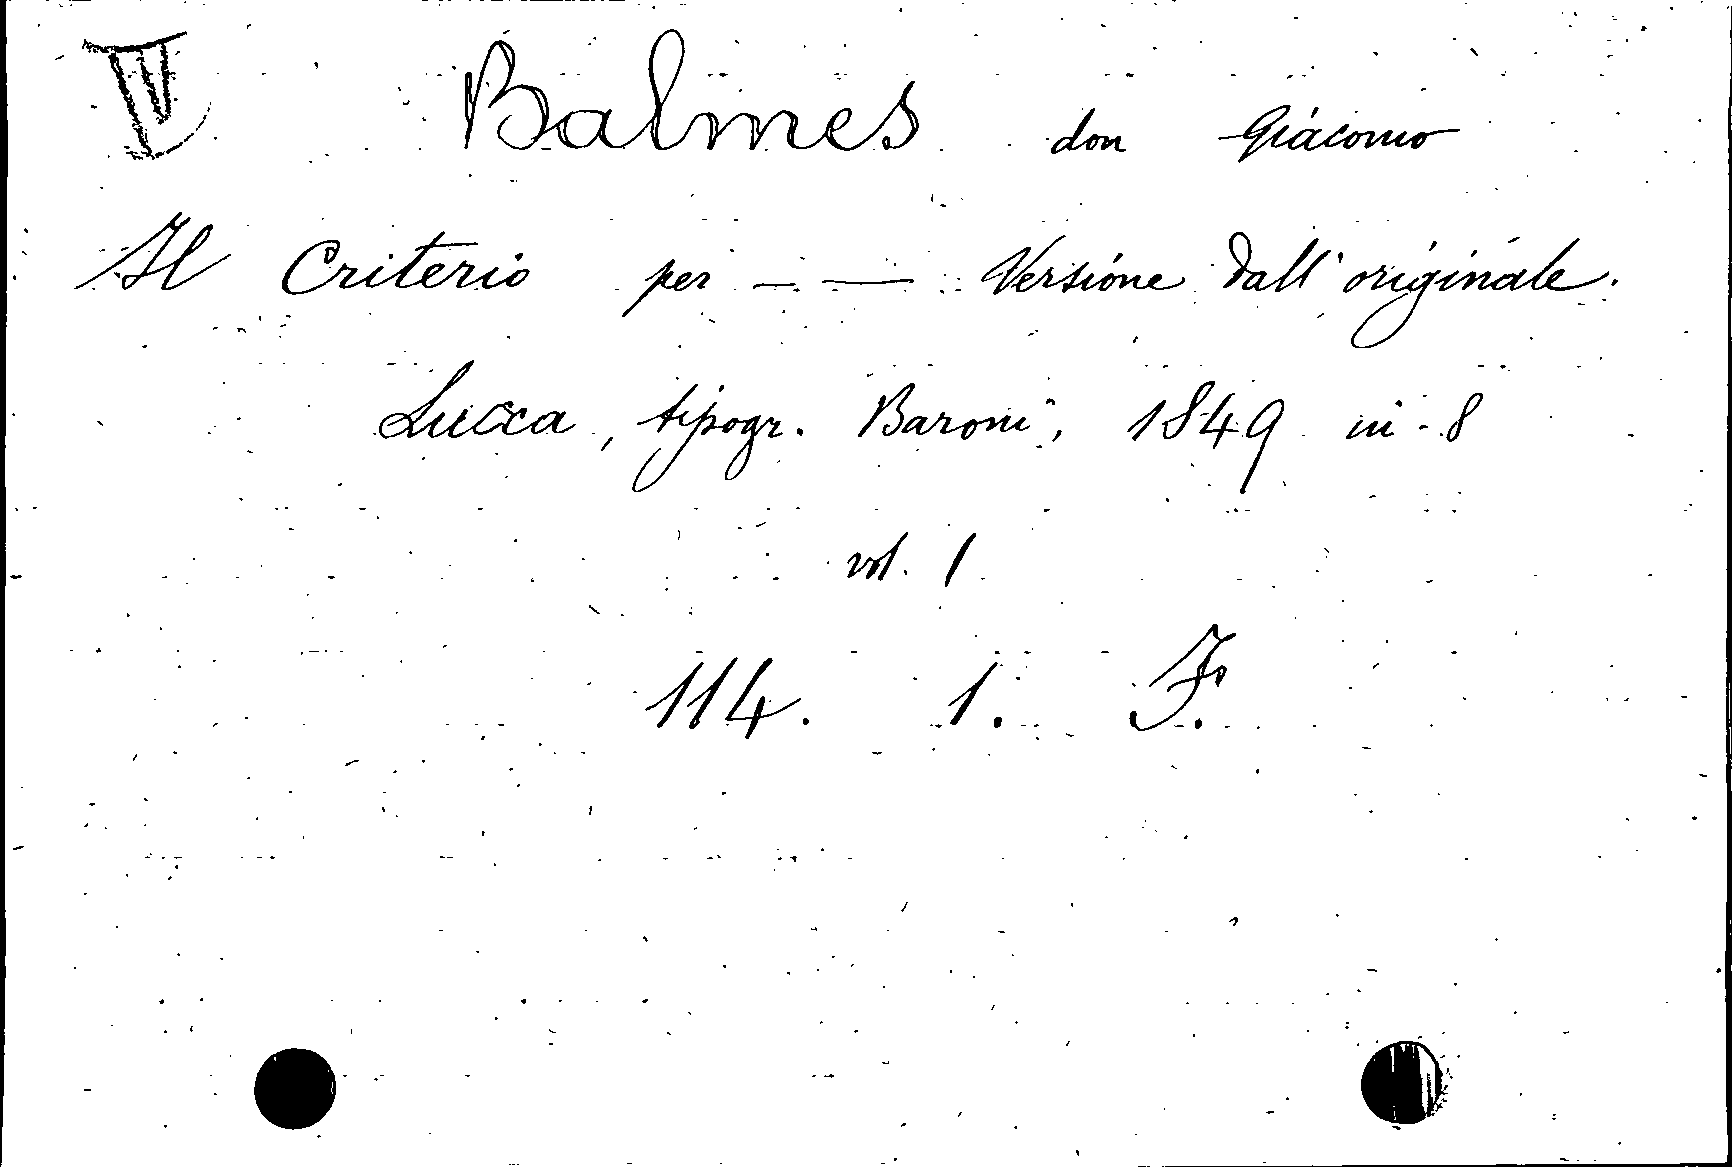 Balmes don Giacomo
Il Criterio per — — Versione dall'originale.
Lucca, tipogr. Baroni, 1849 in-8
vol. 1
114. 1. F.